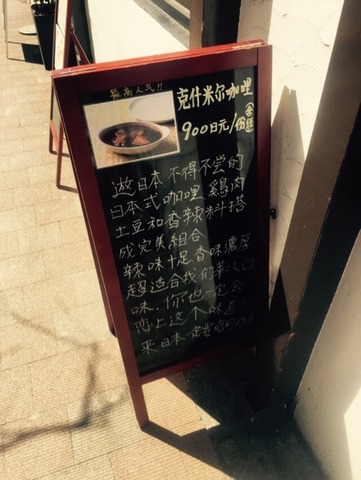 最高人气!!
克什米尔咖哩
900日元/份
遊日本不得不尝的
日本式咖哩 鷄肉
土豆和香辣料搭
成完美組合
辣味十足香味濃厚
超适合我们華人口
味.你也一定会
恋上这个味道!!
来日本一定要